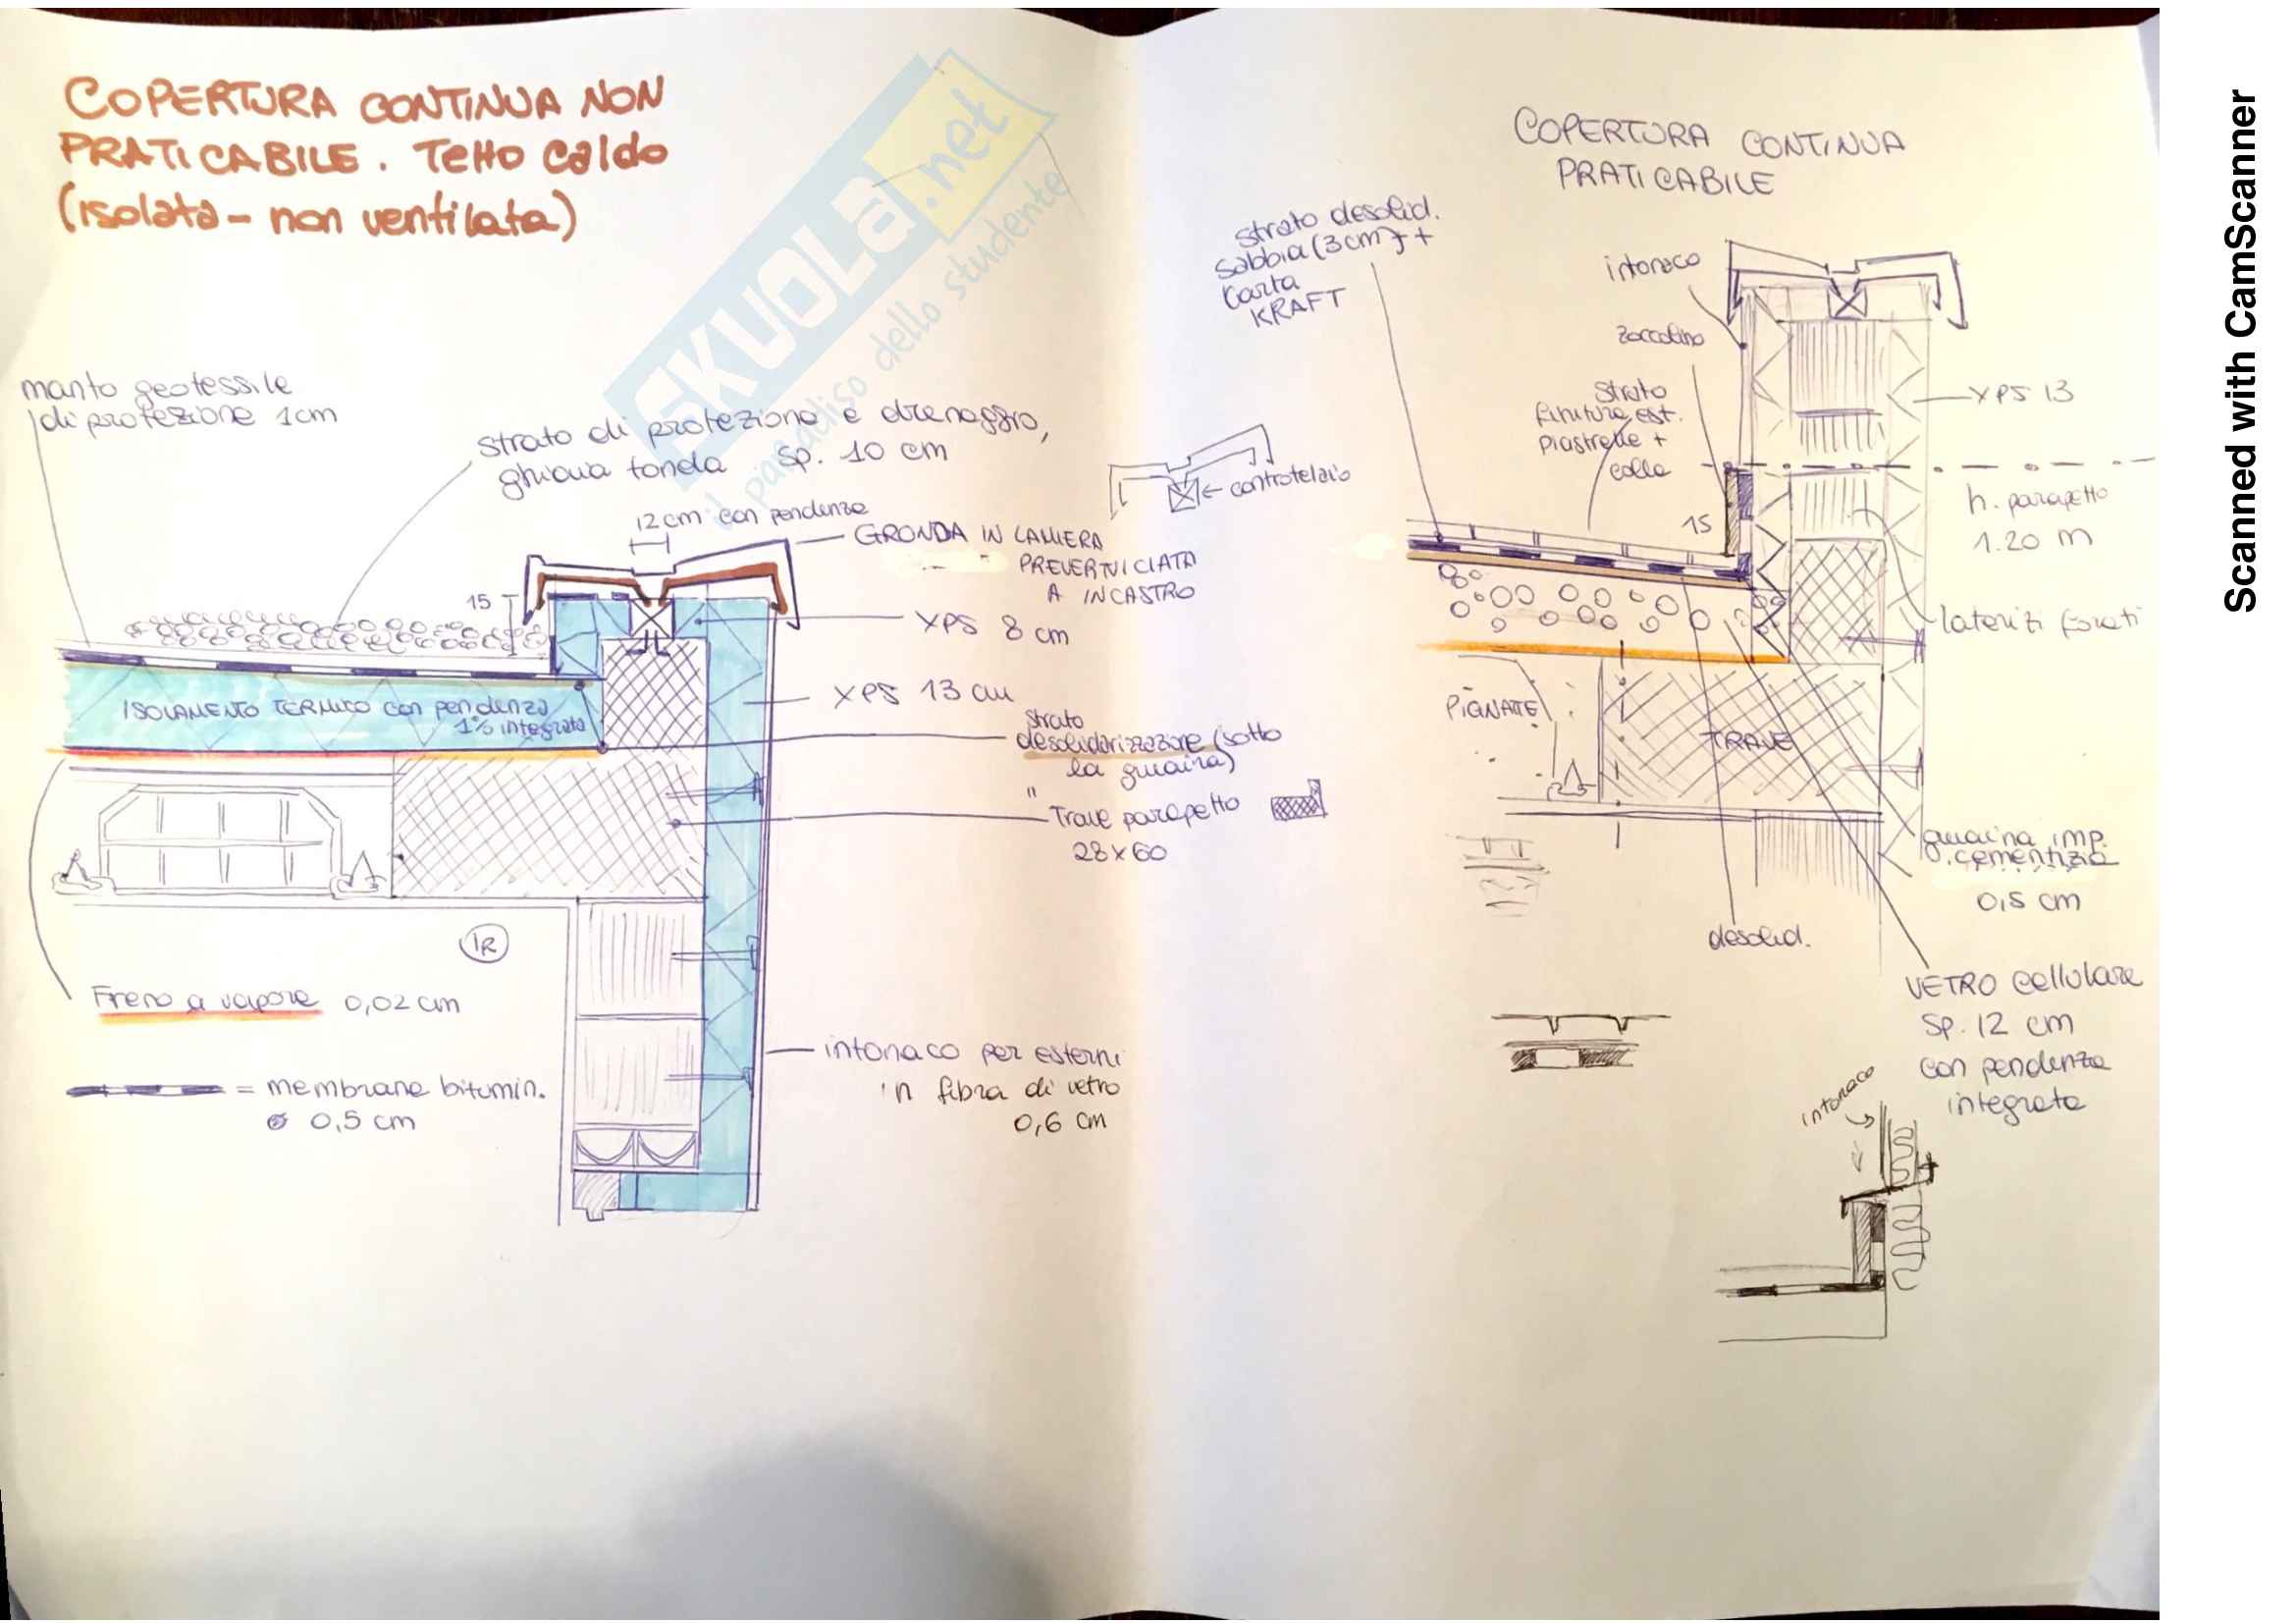 COPERTURA CONTINUA NON
PRATICABILE. Tetto caldo
(isolata - non ventilata)
SKUOLA.net
il paradiso dello studente
manto geotessile
di protezione 1cm
strato di protezione e drenaggio,
ghiaia tonda sp. 10 cm
12 cm con pendenza
GRONDA IN LAMIERA
PREVERNICIATA
A INCASTRO
controtelaio
15
XPS 8 cm
XPS 13 cm
ISOLAMENTO TERMICO con pendenza
1% integrata
strato
desolidarizzazione (sotto
la guaina)
"
Trave parapetto
28x60
Freno a vapore 0,02 cm
= membrane bitumin.
ø 0,5 cm
intonaco per esterni
in fibra di vetro
0,6 cm
COPERTURA CONTINUA
PRATICABILE
strato desolid.
sabbia (3cm) +
carta
KRAFT
intonaco
zoccolino
strato
finitura est.
piastrelle +
colla
15
XPS 13
h. parapetto
1.20 m
laterizi forati
PIGNATTE
TRAVE
guaina imp.
cementizia
0,5 cm
desolid.
VETRO cellulare
sp. 12 cm
con pendenza
integrata
intonaco
Scanned with CamScanner